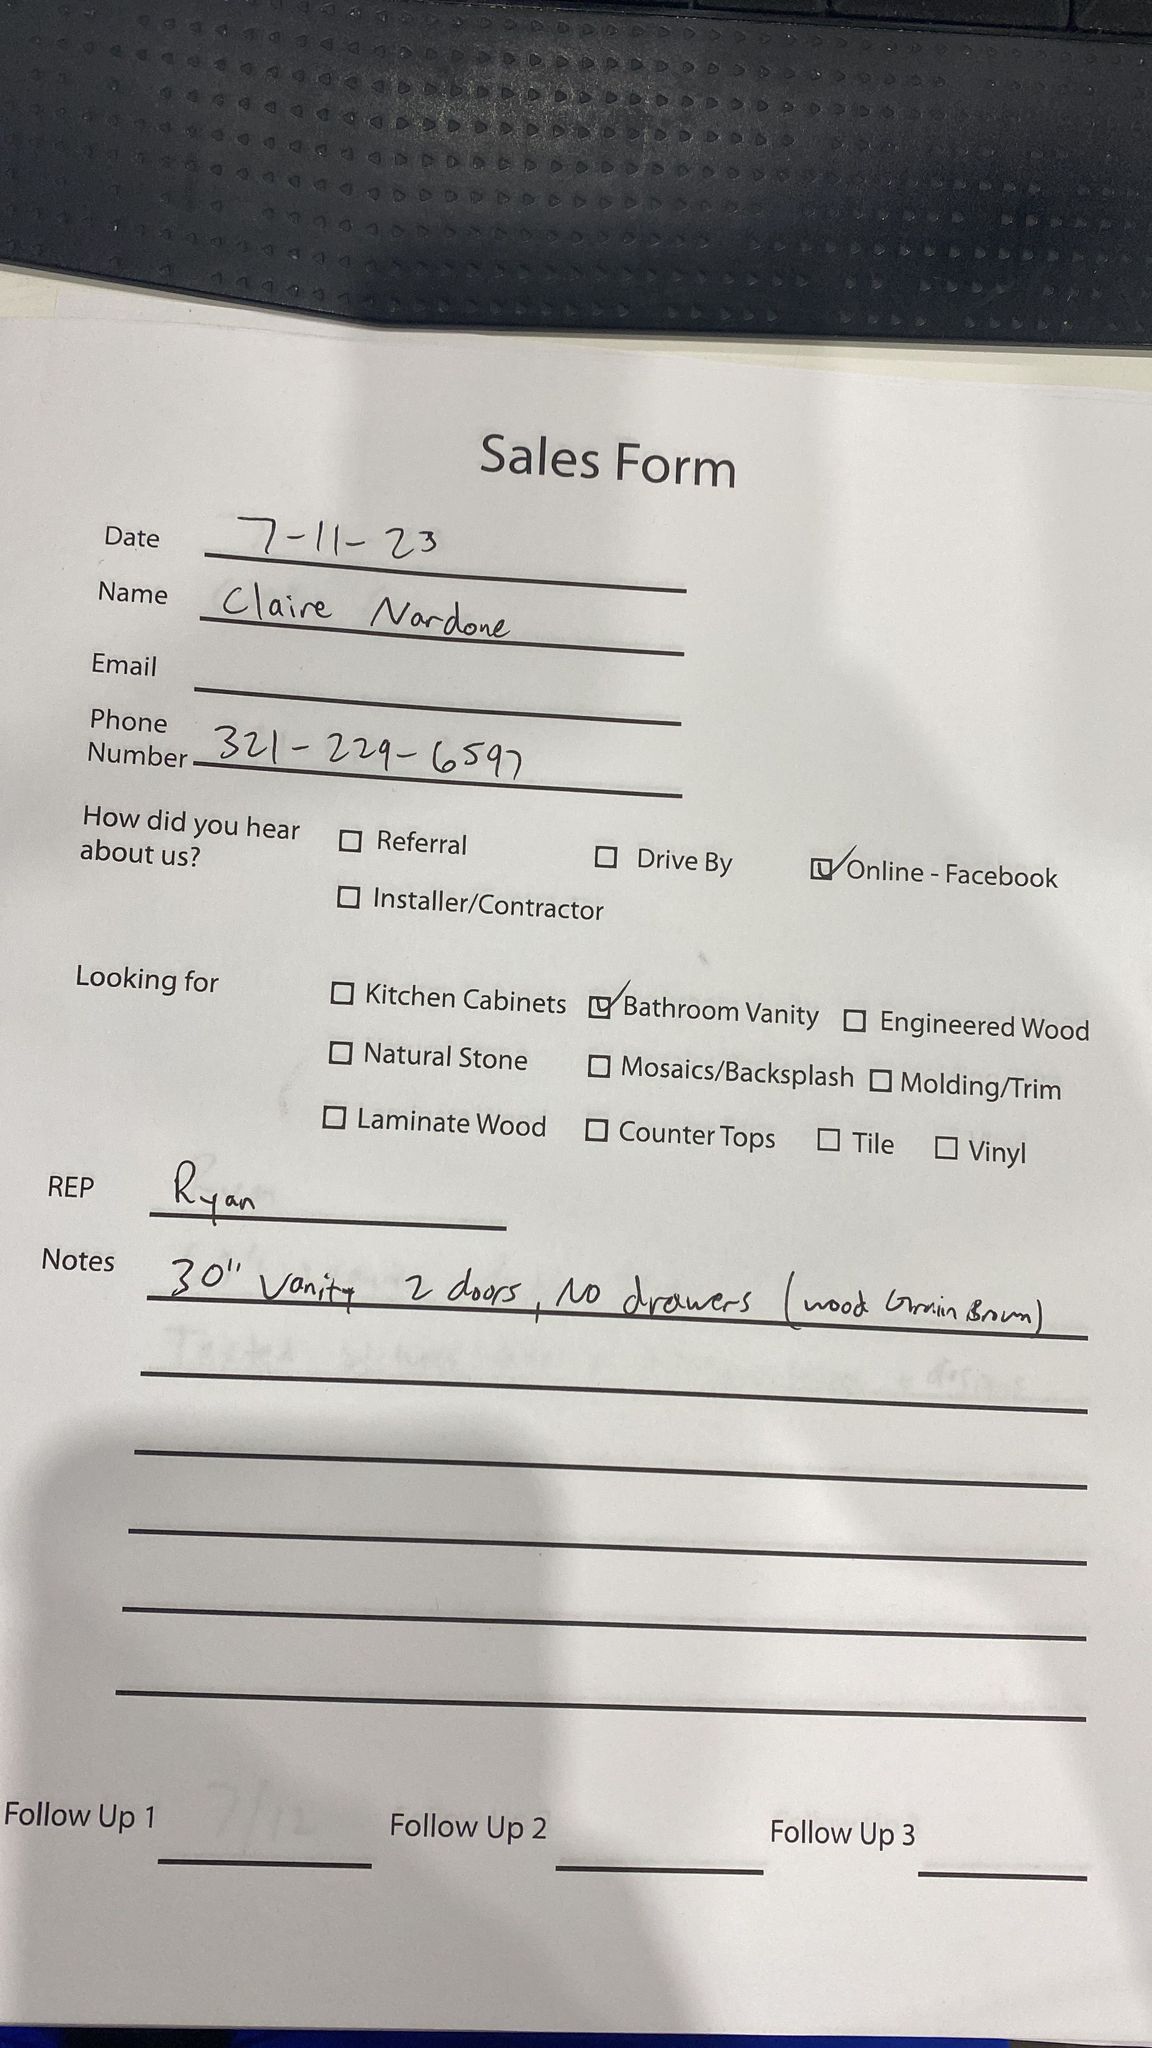 Sales Form
Date 7-11-23
Name Claire Nardone
Email
Phone
Number 321-229-6597
How did you hear
about us?
Referral Drive By Online - Facebook
Installer/Contractor
Looking for
Kitchen Cabinets Bathroom Vanity Engineered Wood
Natural Stone Mosaics/Backsplash Molding/Trim
Laminate Wood Counter Tops Tile Vinyl
REP Ryan
Notes 30" Vanity 2 doors, No drawers (wood Grain Brown)
Follow Up 1 7/12 Follow Up 2 Follow Up 3